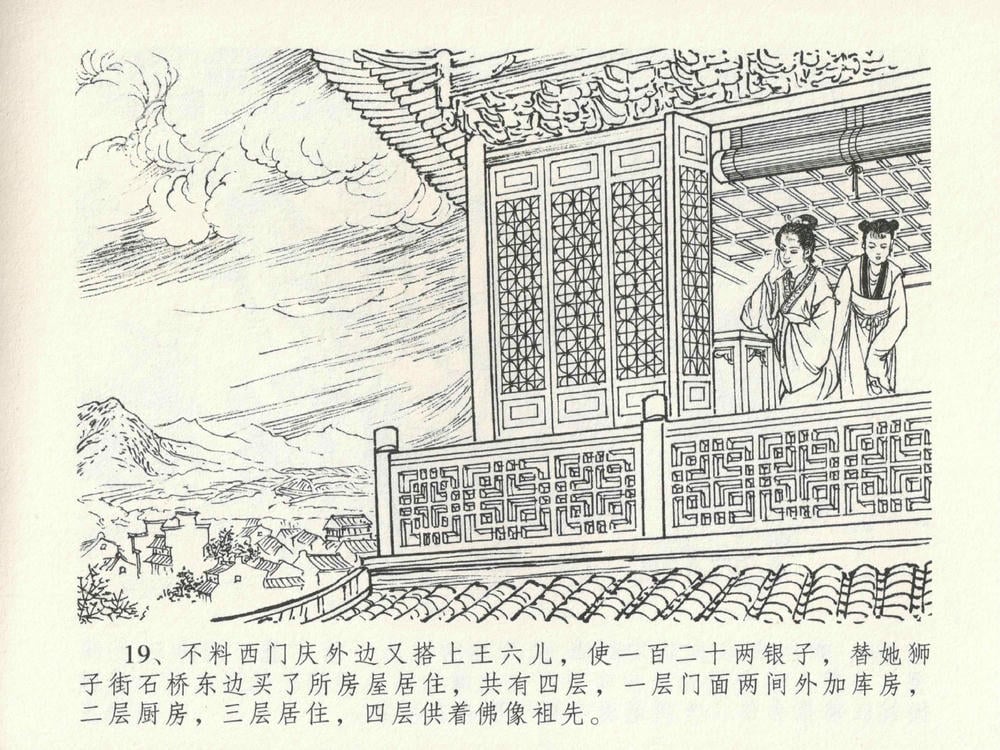 19、不料西门庆外边又搭上王六儿，使一百二十两银子，替她狮
子街石桥东边买了所房屋居住，共有四层，一层门面两间外加库房，
二层厨房，三层居住，四层供着佛像祖先。